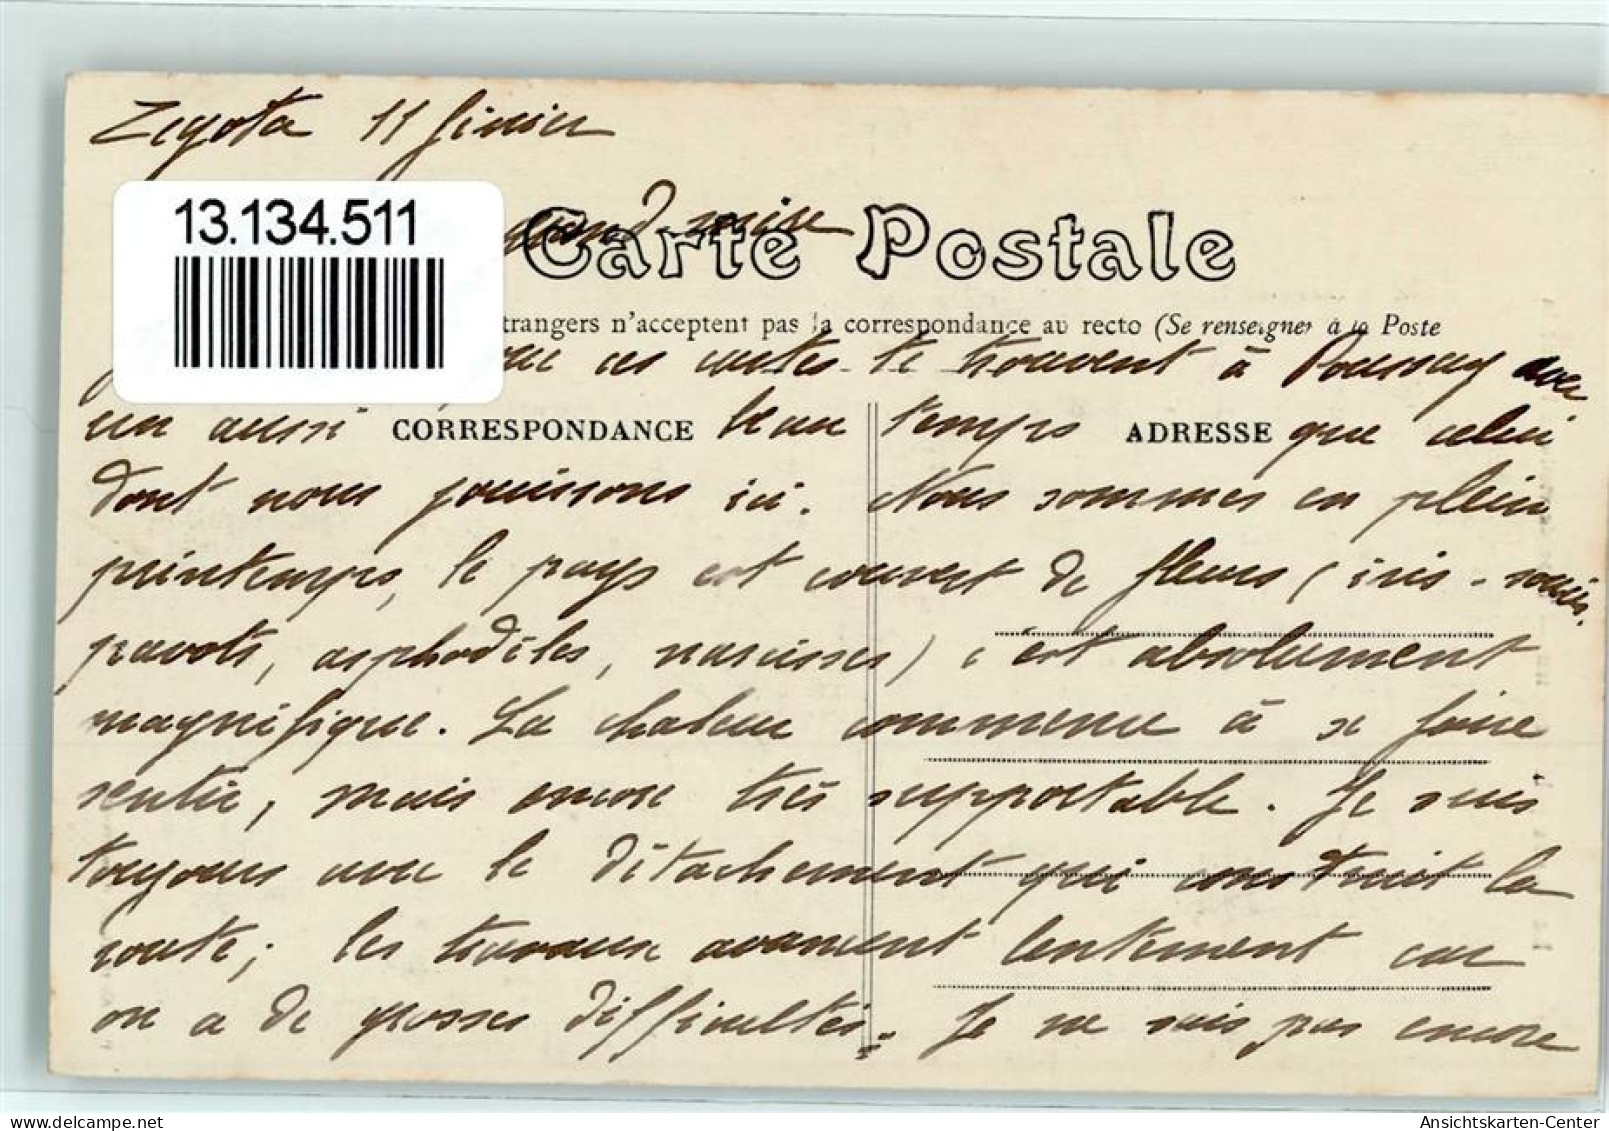 Zegota 11 février
13.134.511
grand-mère
Carte Postale
trangers n'acceptent pas la correspondance au recto (Se renseigner à la Poste
que ces cartes te trouvent à Poussay avec
un aussi CORRESPONDANCE beau temps ADRESSE que celui
dont nous jouissons ici. Nous sommes en plein
printemps, le pays est couvert de fleurs (iris - soucis.
pavots, asphodèles, narcisses) c'est absolument
magnifique. La chaleur commence à se faire
sentir, mais encore très supportable. Je suis
toujours avec le détachement qui construit la
route; les travaux avancent lentement car
on a de grosses difficultés. Je ne sais pas encore
Ansichtskarten-Center